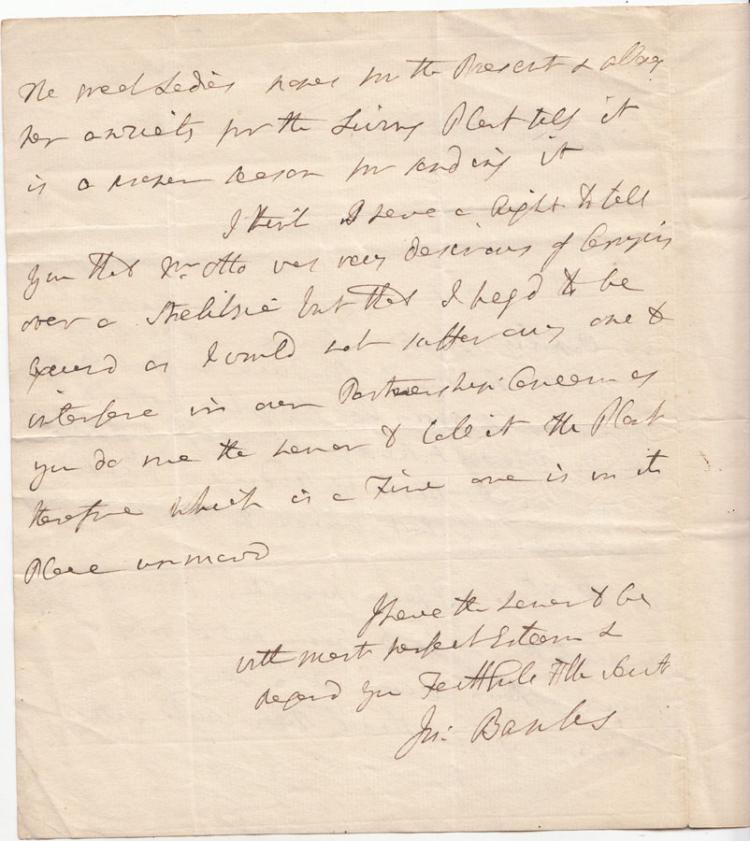 the Ladies for the Present & allay
her anxiety for the Living Plant tell it
is a reason for sending it
I think I have a Right to tell
you that Mr Otto was very desirous of Carrying
over a but that I beg'd to be
Excusd as I would not suffer any one to
interfere in our Partnership Concern as
you do me the honor to Call it the Plant
therefore which is a Fine one is in its
Place unmovd
I have the honor to be
with most perfect Esteem &
regard your Faithfull Hble Servt
Jos: Banks